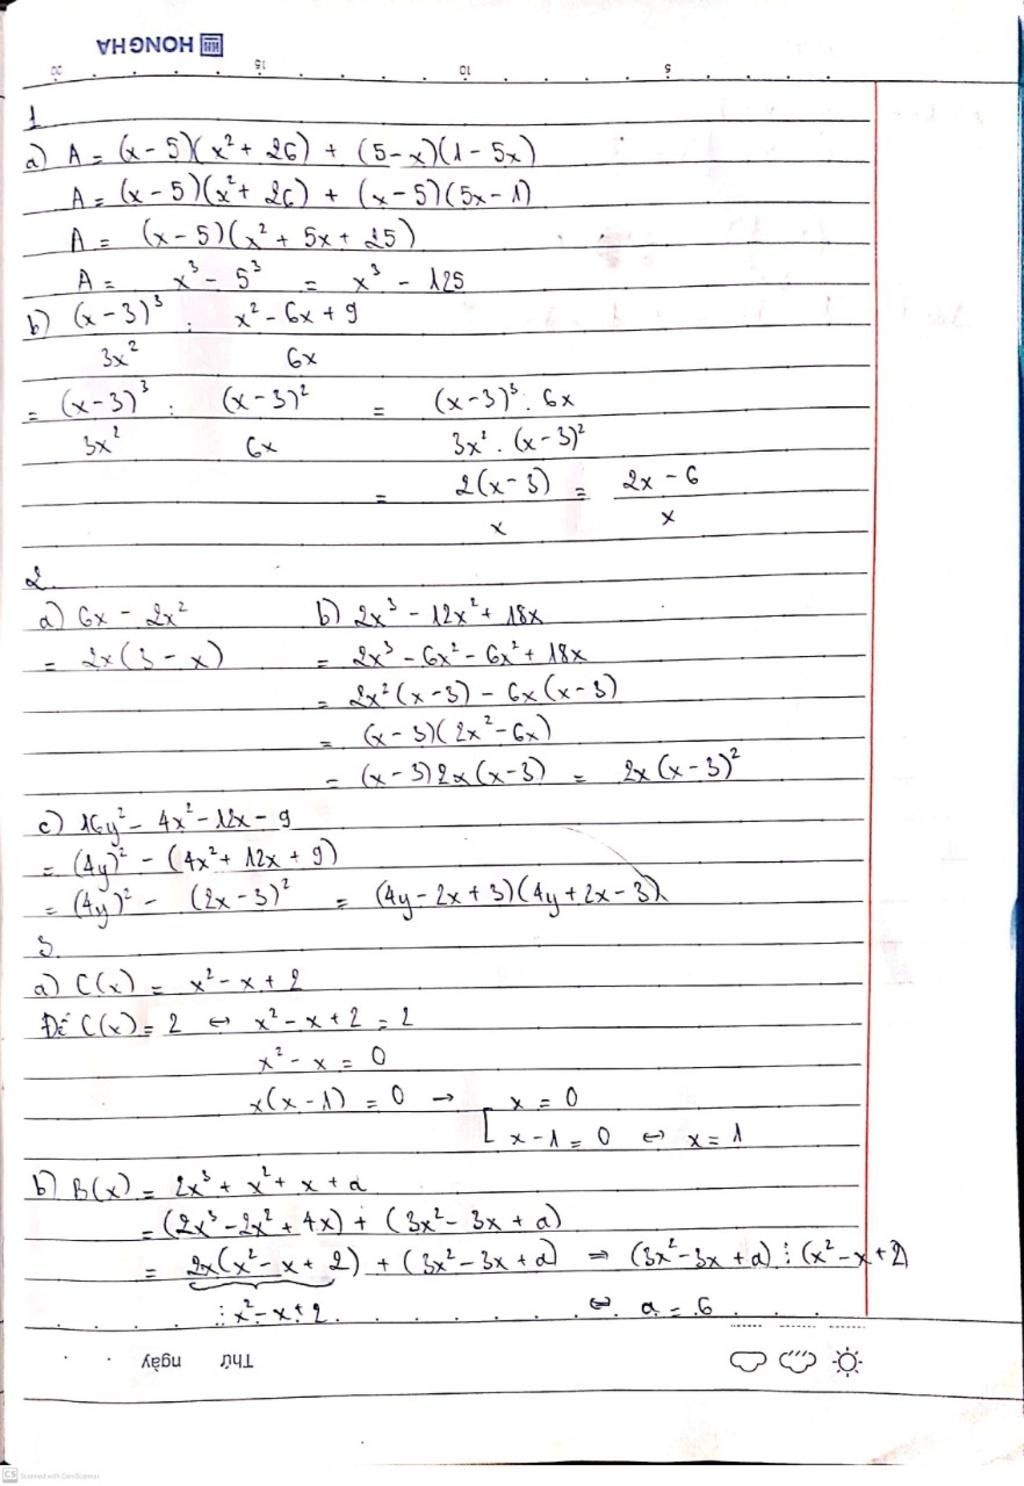 HONG HA
20 15 10 5
1
a) A = (x - 5)(x² + 26) + (5 - x)(1 - 5x)
A = (x - 5)(x² + 26) + (x - 5)(5x - 1)
A = (x - 5)(x² + 5x + 25)
A = x³ - 5³ = x³ - 125
b) (x - 3)³ : x² - 6x + 9
3x² 6x
= (x - 3)³ : (x - 3)² = (x - 3)³ . 6x
3x² 6x 3x² . (x - 3)²
= 2(x - 3) = 2x - 6
x x
2.
a) 6x - 2x² b) 2x³ - 12x² + 18x
= 2x(3 - x) = 2x³ - 6x² - 6x² + 18x
= 2x²(x - 3) - 6x(x - 3)
= (x - 3)(2x² - 6x)
= (x - 3)2x(x - 3) = 2x(x - 3)²
c) 16y² - 4x² - 12x - 9
= (4y)² - (4x² + 12x + 9)
= (4y)² - (2x - 3)² = (4y - 2x + 3)(4y + 2x - 3)
3.
a) C(x) = x² - x + 2
Để C(x) = 2 ↔ x² - x + 2 = 2
x² - x = 0
x(x - 1) = 0 → [ x = 0
x - 1 = 0 ↔ x = 1
b) B(x) = 2x³ + x² + x + a
= (2x³ - 2x² + 4x) + (3x² - 3x + a)
= 2x(x² - x + 2) + (3x² - 3x + a) ⇒ (3x² - 3x + a) ⋮ (x² - x + 2)
⋮ x² - x + 2 ⇔ a = 6
Thứ ngày
CS Scanned with CamScanner